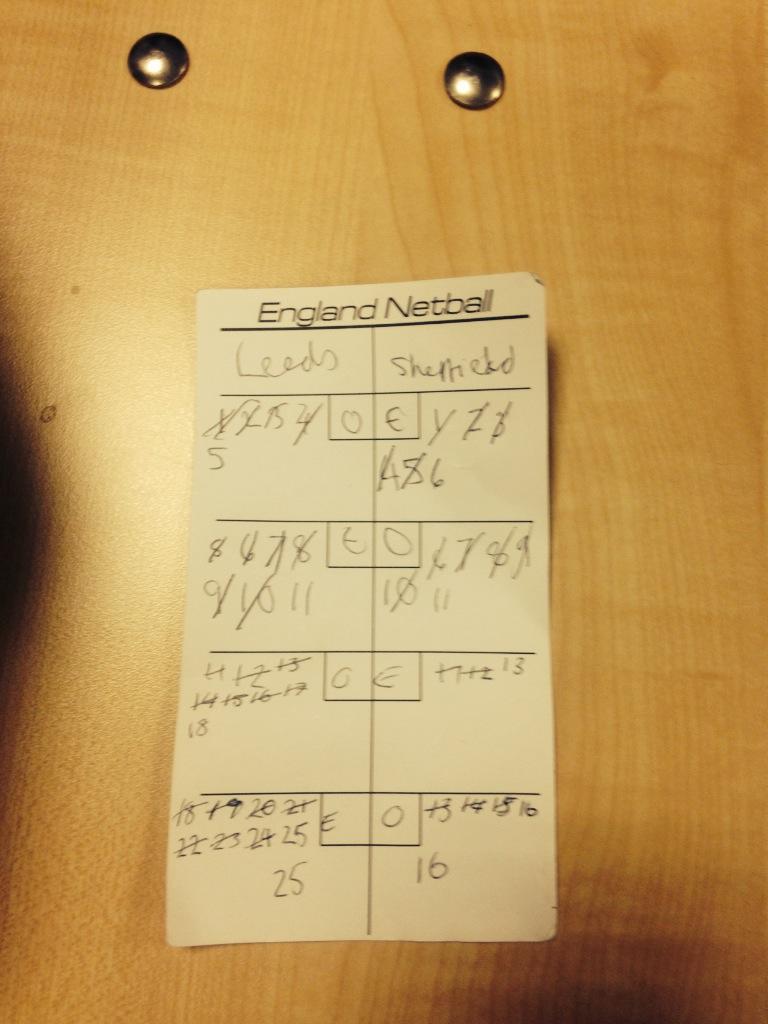 England Netball
Leeds Sheffield
1 2 3 4 O E 1 2 3
5 4 5 6
5 6 7 8 E O 6 7 8 9
9 10 11 10 11
11 12 13 O E 11 12 13
14 15 16 17
18
18 19 20 21 E O 13 14 15 16
22 23 24 25
25 16